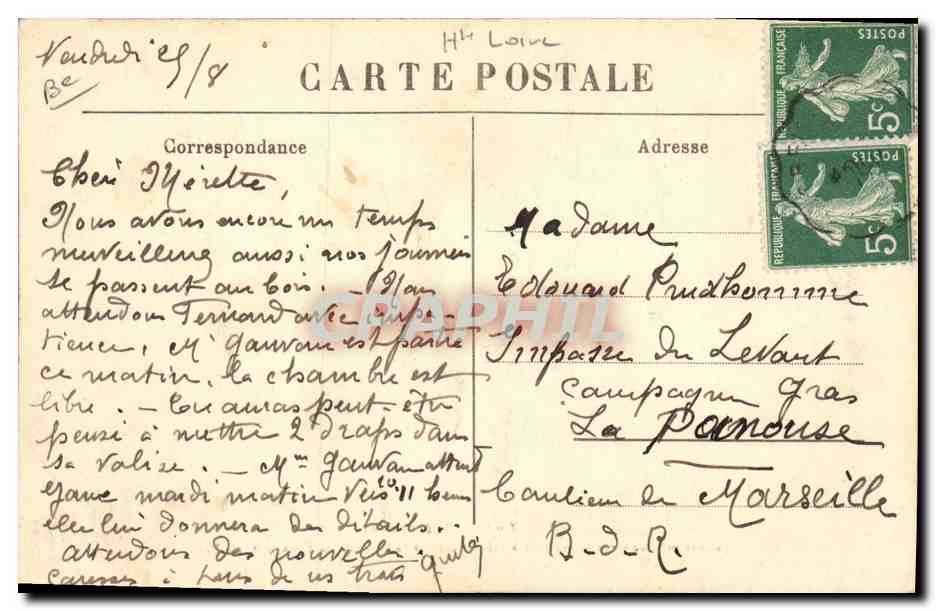 Vendredi 25/8
Hte Loire
CARTE POSTALE
Correspondance
Chère Mérette,
Nous avons encore un temps
merveilleux aussi nos journées
se passent au bois. — Nous
attendons Fernand avec impa-
tience, Mr Gauvan est partie
ce matin, la chambre est
libre. — Tu auras peut-être
pensé à mettre 2 draps dans
sa valise. — Mme Gauvan attend
mardi matin vers 10 11 heures
elle lui donnera des détails..
attendons des nouvelles.
Caresses à tous de nous trois
Adresse
Madame
Edouard Prudhomme
Impasse du Levant
Campagne Gras
La Panouse
banlieue de Marseille
B-d-R.
REPUBLIQUE FRANÇAISE
POSTES
5c
REPUBLIQUE FRANÇAISE
POSTES
5c
CPAPHIL